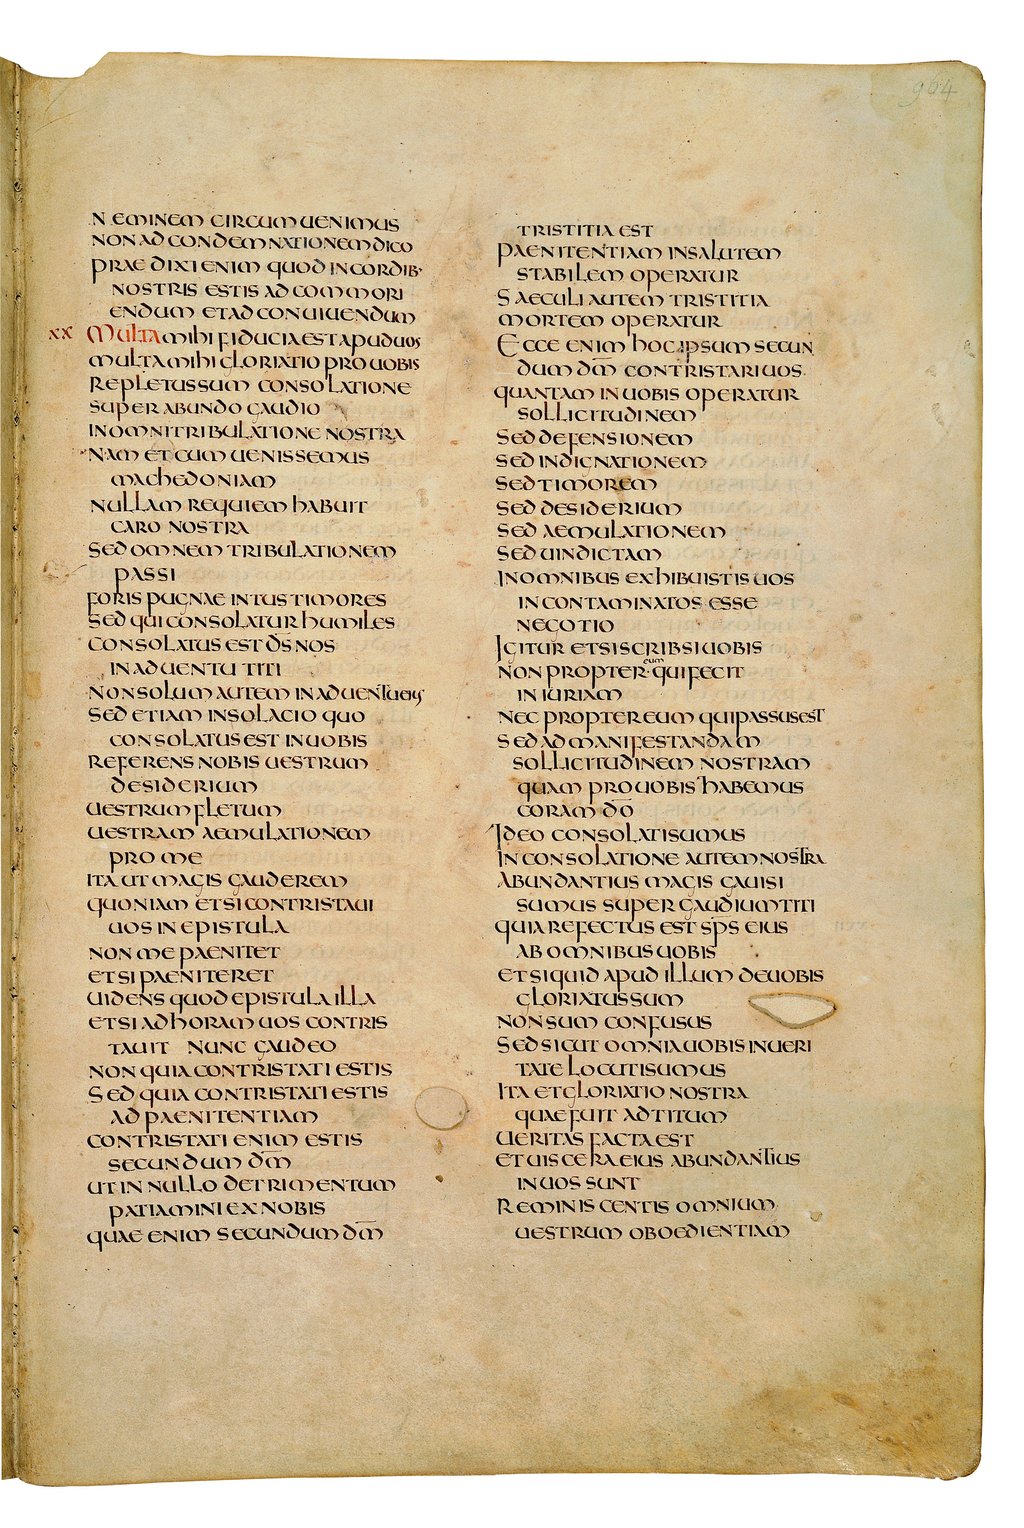 964
NEMINEM CIRCUMUENIMUS
NON AD CONDEMNATIONEM DICO
PRAEDIXI ENIM QUOD IN CORDIB·
NOSTRIS ESTIS AD COMMORI
ENDUM ET AD CONUIUENDUM
XX MULTA MIHI FIDUCIA EST APUD UOS
MULTA MIHI GLORIATIO PRO UOBIS
REPLETUS SUM CONSOLATIONE
SUPERABUNDO GAUDIO
IN OMNI TRIBULATIONE NOSTRA
NAM ET CUM UENISSEMUS
MACHEDONIAM
NULLAM REQUIEM HABUIT
CARO NOSTRA
SED OMNEM TRIBULATIONEM
PASSI
FORIS PUGNAE INTUS TIMORES
SED QUI CONSOLATUR HUMILES
CONSOLATUS EST D̅S̅ NOS
IN ADUENTU TITI
NON SOLUM AUTEM IN ADUENTU EIUS
SED ETIAM IN SOLACIO QUO
CONSOLATUS EST IN UOBIS
REFERENS NOBIS UESTRUM
DESIDERIUM
UESTRUM FLETUM
UESTRAM AEMULATIONEM
PRO ME
ITA UT MAGIS GAUDEREM
QUONIAM ET SI CONTRISTAUI
UOS IN EPISTULA
NON ME PAENITET
ET SI PAENITERET
UIDENS QUOD EPISTULA ILLA
ET SI AD HORAM UOS CONTRIS
TAUIT NUNC GAUDEO
NON QUIA CONTRISTATI ESTIS
SED QUIA CONTRISTATI ESTIS
AD PAENITENTIAM
CONTRISTATI ENIM ESTIS
SECUNDUM D̅M̅
UT IN NULLO DETRIMENTUM
PATIAMINI EX NOBIS
QUAE ENIM SECUNDUM D̅M̅
TRISTITIA EST
PAENITENTIAM IN SALUTEM
STABILEM OPERATUR
SAECULI AUTEM TRISTITIA
MORTEM OPERATUR
ECCE ENIM HOC IPSUM SECUN
DUM D̅M̅ CONTRISTARI UOS
QUANTAM IN UOBIS OPERATUR
SOLLICITUDINEM
SED DEFENSIONEM
SED INDIGNATIONEM
SED TIMOREM
SED DESIDERIUM
SED AEMULATIONEM
SED UINDICTAM
IN OMNIBUS EXHIBUISTIS UOS
INCONTAMINATOS ESSE
NEGOTIO
IGITUR ET SI SCRIBSI UOBIS
NON PROPTER EUM QUI FECIT
INIURIAM
NEC PROPTER EUM QUI PASSUS EST
SED AD MANIFESTANDAM
SOLLICITUDINEM NOSTRAM
QUAM PRO UOBIS HABEMUS
CORAM D̅O̅
IDEO CONSOLATI SUMUS
IN CONSOLATIONE AUTEM NOSTRA
ABUNDANTIUS MAGIS GAUISI
SUMUS SUPER GAUDIUM TITI
QUIA REFECTUS EST S̅P̅S̅ EIUS
AB OMNIBUS UOBIS
ET SI QUID APUD ILLUM DE UOBIS
GLORIATUS SUM
NON SUM CONFUSUS
SED SICUT OMNIA UOBIS IN UERI
TATE LOCUTI SUMUS
ITA ET GLORIATIO NOSTRA
QUAE FUIT AD TITUM
UERITAS FACTA EST
ET UISCERA EIUS ABUNDANTIUS
IN UOS SUNT
REMINISCENTIS OMNIUM
UESTRUM OBOEDIENTIAM